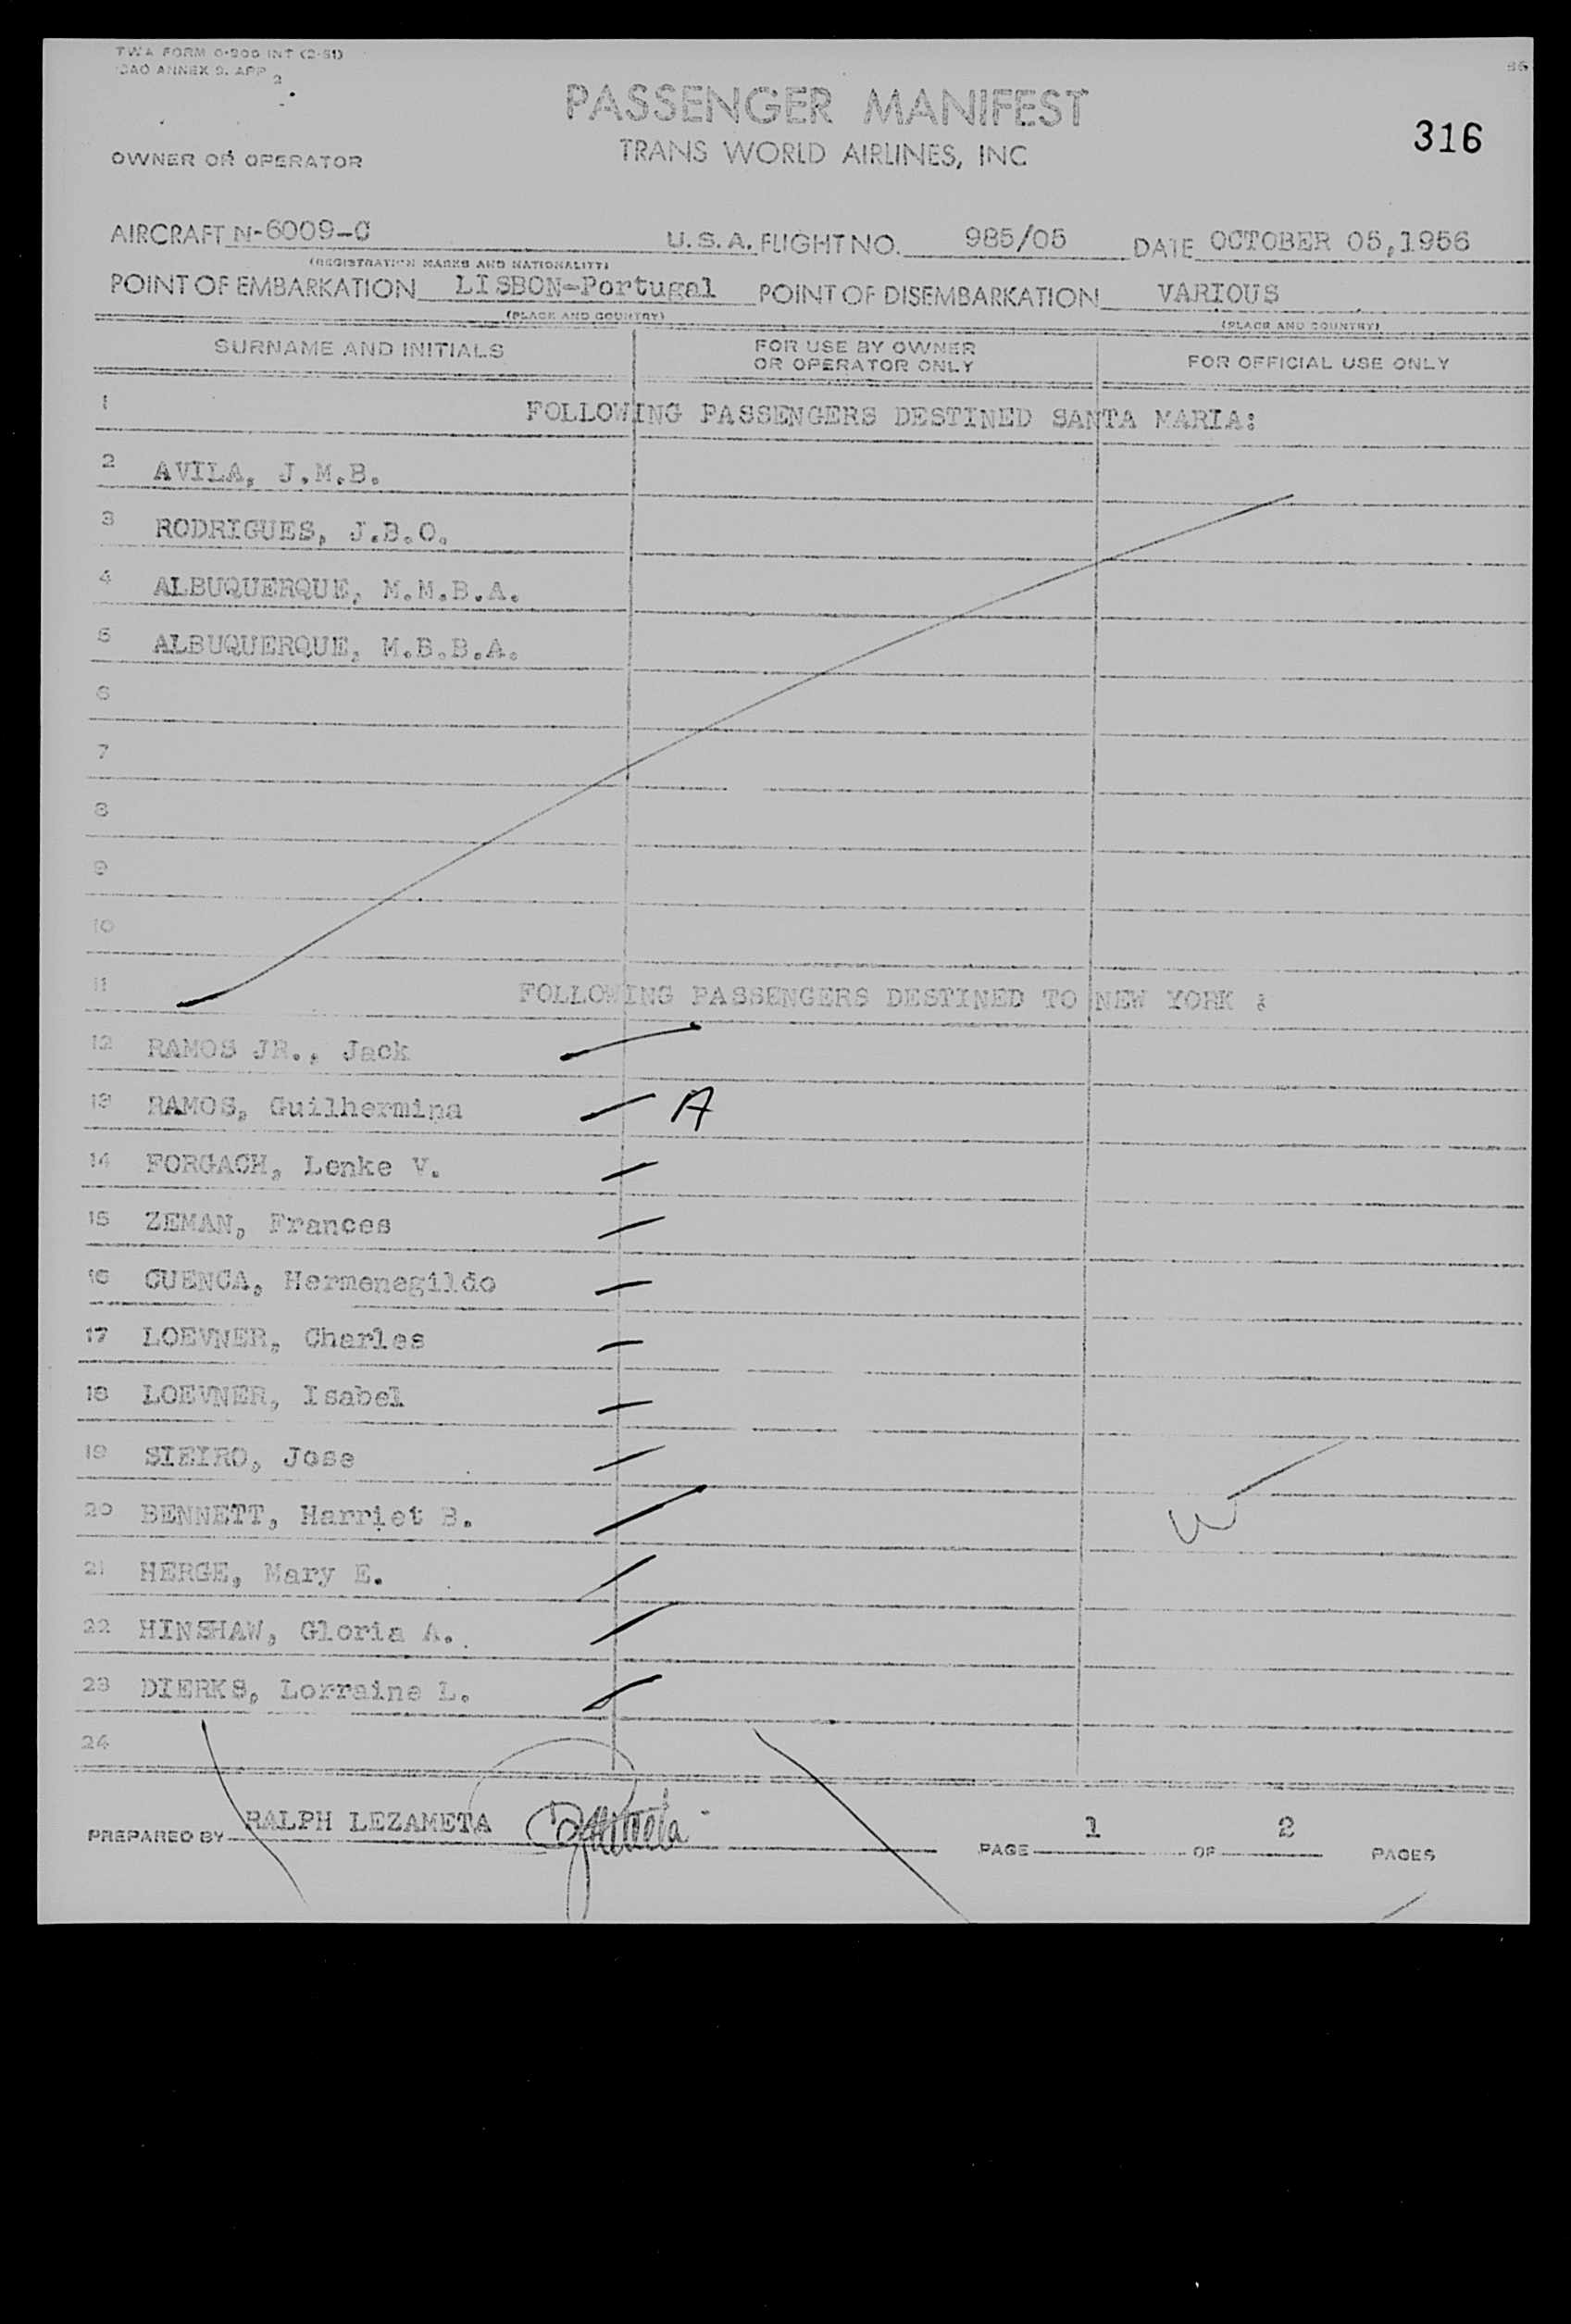 TWA FORM 0-200 INT (2-51)
ICAO ANNEX 9. APP 2
PASSENGER MANIFEST
316
OWNER OR OPERATOR
TRANS WORLD AIRLINES, INC
AIRCRAFT N-6009-C U.S.A. FLIGHT NO. 985/05 DATE OCTOBER 05,1956
(REGISTRATION MARKS AND NATIONALITY)
POINT OF EMBARKATION LISBON-Portugal POINT OF DISEMBARKATION VARIOUS
(PLACE AND COUNTRY) (PLACE AND COUNTRY)
SURNAME AND INITIALS FOR USE BY OWNER OR OPERATOR ONLY FOR OFFICIAL USE ONLY
1 FOLLOWING PASSENGERS DESTINED SANTA MARIA:
2 AVILA, J.M.B.
3 RODRIGUES, J.B.O.
4 ALBUQUERQUE, M.M.B.A.
5 ALBUQUERQUE, M.B.B.A.
6
7
8
9
10
11 FOLLOWING PASSENGERS DESTINED TO NEW YORK :
12 RAMOS JR., Jack
13 RAMOS, Guilhermina A
14 FORGACH, Lenke V.
15 ZEMAN, Frances
16 CUENCA, Hermenegildo
17 LOEVNER, Charles
18 LOEVNER, Isabel
19 SIEIRO, Jose
20 BENNETT, Harriet B.
21 HERGE, Mary E.
22 HINSHAW, Gloria A.
23 DIERKS, Lorraine L.
24
PREPARED BY RALPH LEZAMETA
PAGE 1 OF 2 PAGES